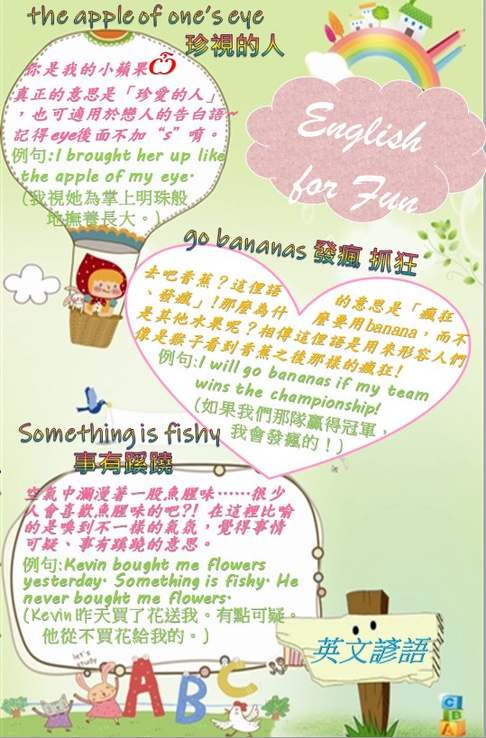 the apple of one's eye
珍視的人
你是我的小蘋果
真正的意思是「珍愛的人」
，也可適用於戀人的告白語~
記得eye後面不加“s”唷。
例句:I brought her up like
the apple of my eye.
(我視她為掌上明珠般
地撫養長大。)
English
for Fun
go bananas 發瘋 抓狂
去吧香蕉？這俚語的意思是「瘋狂
、發瘋」!那麼為什麼要用banana，而不
是其他水果呢？相傳這俚語是用來形容人們
像是猴子看到香蕉之後那樣的瘋狂!
例句:I will go bananas if my team
wins the championship!
(如果我們那隊贏得冠軍，
我會發瘋的！)
Something is fishy
事有蹊蹺
空氣中瀰漫著一股魚腥味……很少
人會喜歡魚腥味的吧?! 在這裡比喻
的是嗅到不一樣的氣氛，覺得事情
可疑、事有蹊蹺的意思。
例句:Kevin bought me flowers
yesterday. Something is fishy. He
never bought me flowers.
(Kevin昨天買了花送我。有點可疑。
他從不買花給我的。)
英文諺語
let's
study
ABC
C
B A